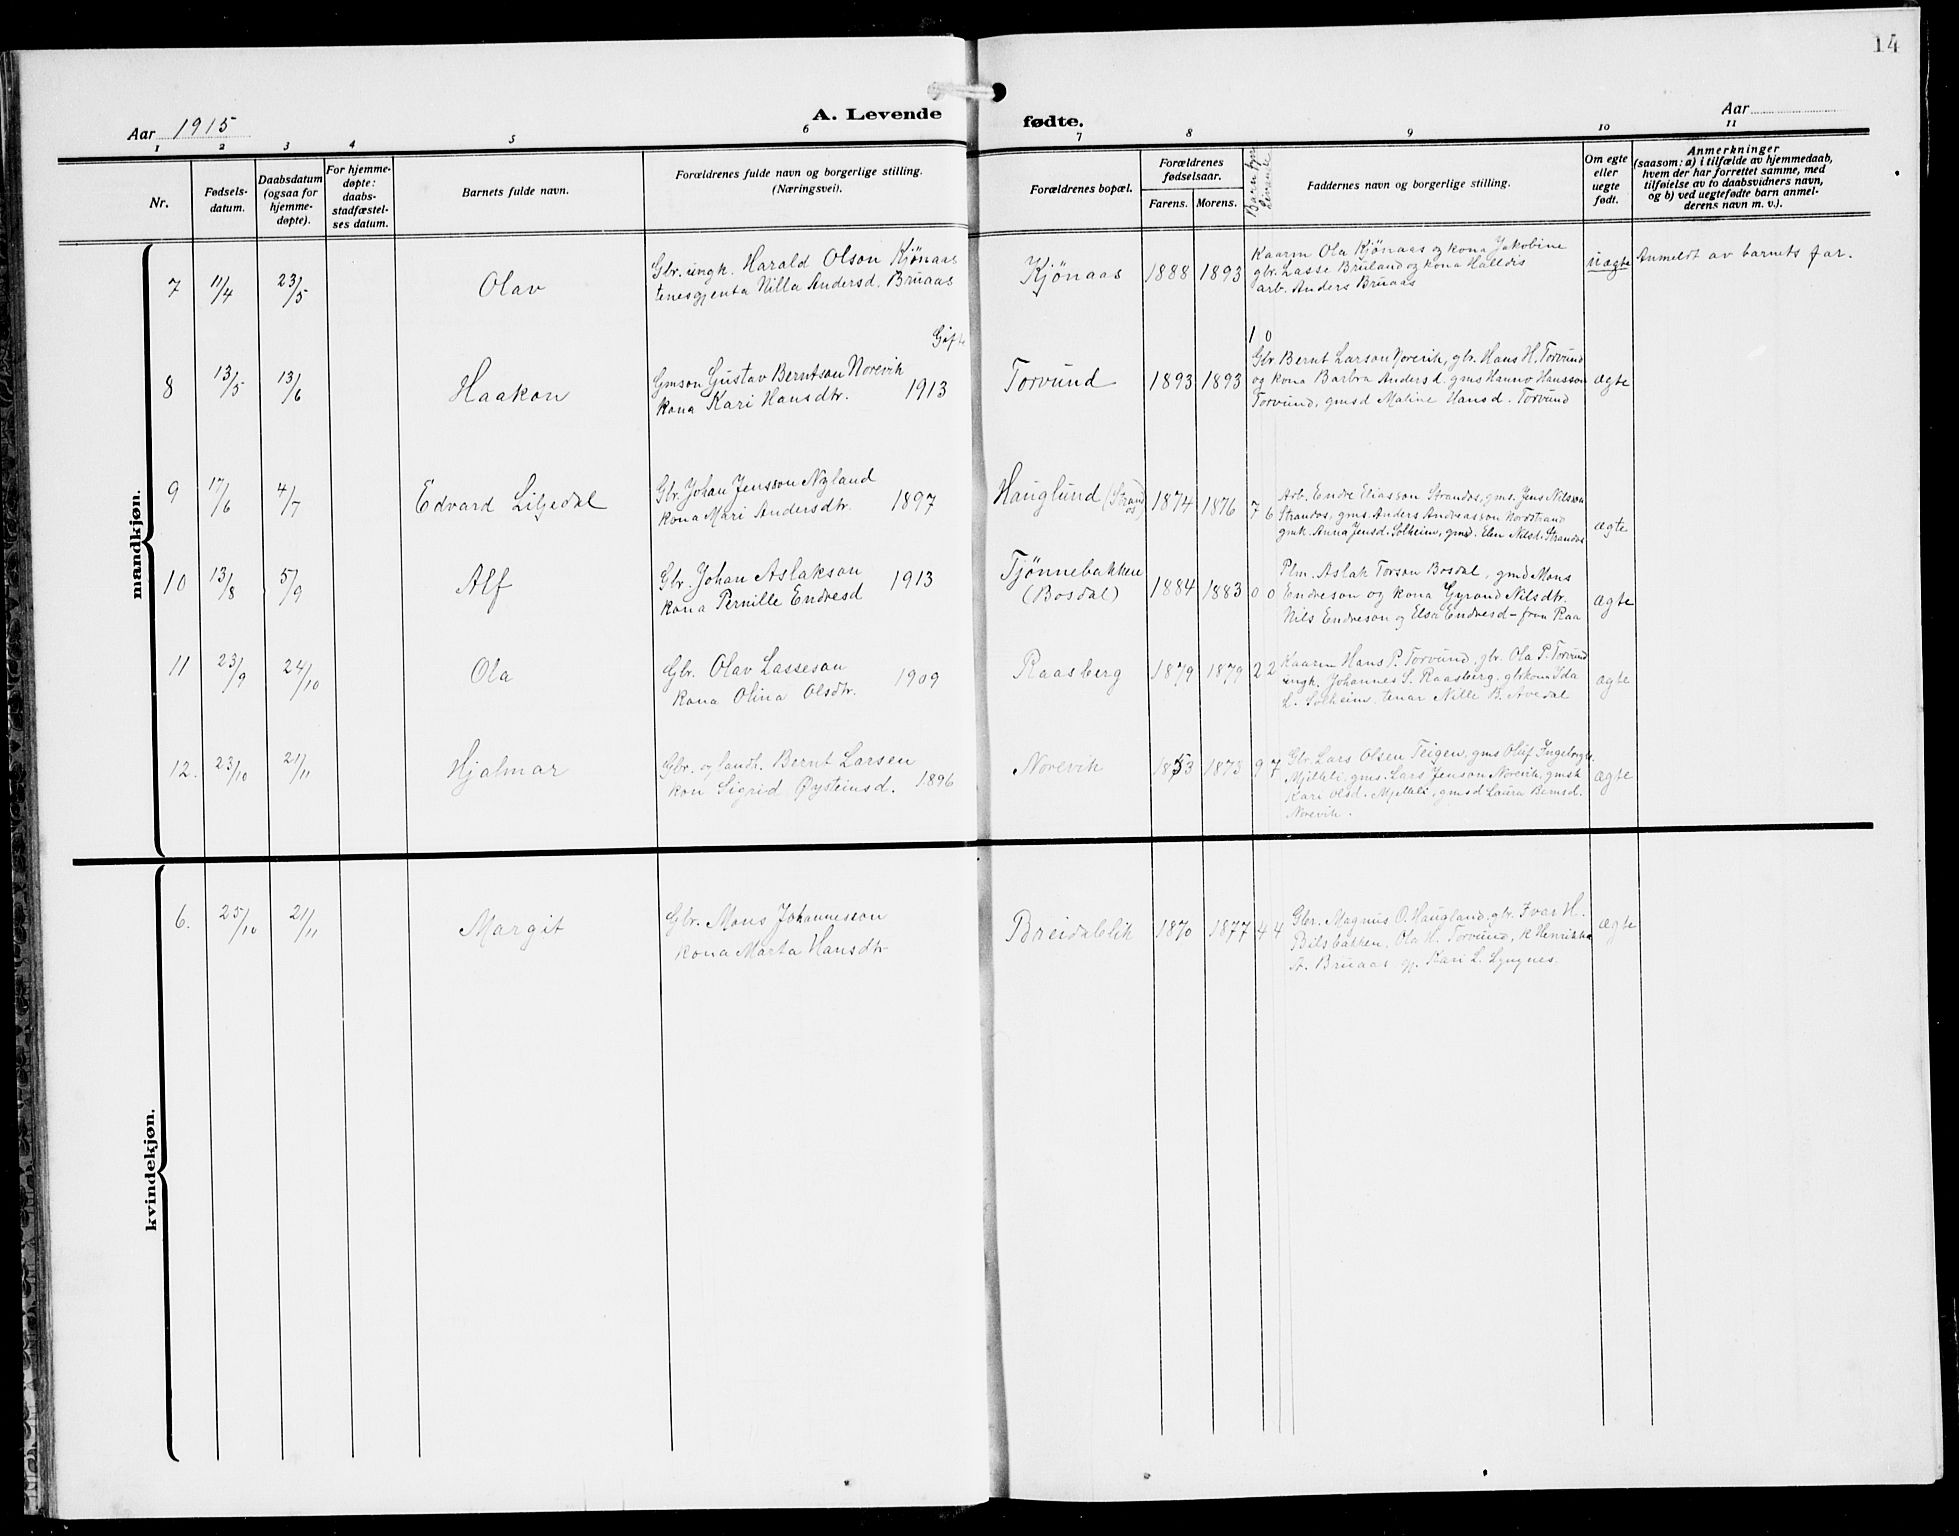 14
Aar 1915
A. Levende
fødte.
Aar
1 2 3 4 5 6 7 8 9 10 11
Nr.
Fødsels-
datum.
Daabsdatum
(ogsaa for
hjemme-
døpte).
For hjemme-
døpte:
daabs-
stadfæstel-
ses datum.
Barnets fulde navn.
Forældrenes fulde navn og borgerlige stilling.
(Næringsvei).
Forældrenes bopæl.
Forældrenes
fødselsaar.
Farens. Morens.
Faddernes navn og borgerlige stilling.
Om egte
eller
uegte
født.
Anmerkninger
(saasom: a) i tilfælde av hjemmedaab,
hvem der har forrettet samme, med
tilføielse av to daabsvidners navn,
og b) ved uegtefødte barn anmel-
derens navn m. v.).
mandkjøn.
7 11/4 23/5 Olav
Gbr. ungk. Harald Olson Kjønaas
tenesgjenta Nilla Andersd. Bruaas
Kjønaas 1888 1893
Kaarm Ola Kjønaas og kona Jakobine
gbr. Lasse Bruland og kona Halldis
arb. Anders Bruaas
uægte
Anmeldt av barnets far.
Gifte
8 13/5 13/6 Haakon
Gmson Gustav Berntson Norevik
kona Kari Hansdtr. 1913
Torvund 1893 1893 1 0
Gbr Bernt Larson Norevik, gbr. Hans H. Torvund
og kona Barbra Andersd. gms Hanno Hansson
Torvund, gmsd Maline Hansd. Torvund
ægte
9 17/6 4/7 Edvard Liljedal
Gbr. Johan Jensson Nyland
kona Mari Andersdtr. 1897
Hauglund (Strandos) 1874 1876 7 6
Arb. Endre Eliasson Strandos, gms. Jens Nilsson
Strandos, gms. Anders Andreasson Nordstrand
gmk. Anna Jensd. Solheim, gmsd. Elen Nilsd. Strandos
ægte
10 13/8 5/9 Alf
Gbr. Johan Aslakson
kona Pernille Endresd 1913
Tjønnebakken
(Bosdal) 1884 1883 0 0
Plm. Aslak Torson Bosdal, gmd Mons
Endreson og kona Gyrand Nilsdtr.
Nils Endreson og Elsa Endresd - fraa Raa
ægte
11 23/9 24/10 Ola
Gbr. Olav Lasseson
kona Olina Olsdtr. 1909
Raasberg 1879 1879 2 2
Kaarm Hans P. Torvund, gbr. Ola P. Torvund
ungk. Johannes S. Raasberg, gbkona Ida
L. Solheim, tenar Nille B. Avedal
ægte
12. 23/10 21/11 Hjalmar
Gbr. og landh. Bernt Larsen
kon Sigrid Øysteinsd. 1896
Norevik 1873 9 7
Gbr. Lars Olsen Teigen, gms Oluf Ingebrigts.
Mjelteli, gms. Lars Jenson Norevik, gmsk
Kari Olsd. Mjelteli, gmsd Laura Bernsd.
Norevik.
ægte
kvindekjøn.
6. 25/10 21/11 Margit
Gbr. Mons Johannesson
kona Marta Hansdtr
Breidablik 1870 1877 4 4
Gbr. Magnus O. Haugland, gbr. Ivar H.
Bilsbakken, Ola H. Torvund, k Henrikka
A. Bruaas, gj. Kari L. Lyngnes.
ægte